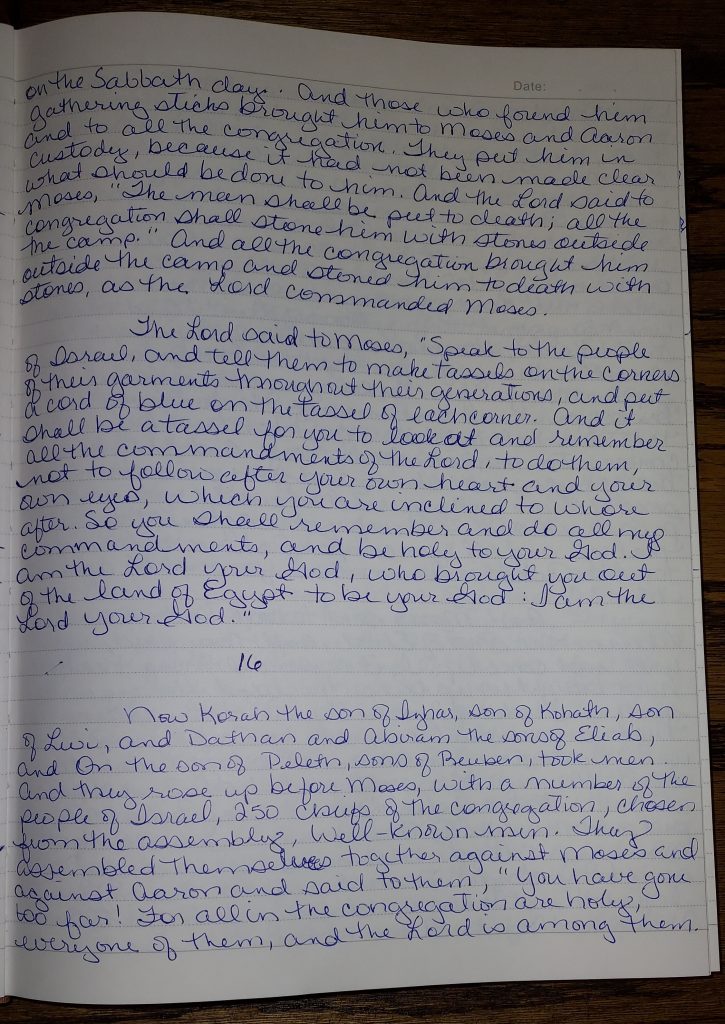 Date:
on the Sabbath day. And those who found him
gathering sticks brought him to Moses and Aaron
and to all the congregation. They put him in
custody, because it had not been made clear
what should be done to him. And the Lord said to
Moses, "The man shall be put to death; all the
congregation shall stone him with stones outside
the camp." And all the congregation brought him
outside the camp and stoned him to death with
stones, as the Lord commanded Moses.
The Lord said to Moses, "Speak to the people
of Israel, and tell them to make tassels on the corners
of their garments throughout their generations, and put
a cord of blue on the tassel of each corner. And it
shall be a tassel for you to look at and remember
all the commandments of the Lord, to do them,
not to follow after your own heart and your
own eyes, which you are inclined to whore
after. So you shall remember and do all my
commandments, and be holy to your God. I
am the Lord your God, who brought you out
of the land of Egypt to be your God: I am the
Lord your God."
16
Now Korah the son of Izhar, son of Kohath, son
of Levi, and Dathan and Abiram the sons of Eliab,
and On the son of Peleth, sons of Reuben, took men.
And they rose up before Moses, with a number of the
people of Israel, 250 chiefs of the congregation, chosen
from the assembly, well-known men. They
assembled themselves together against Moses and
against Aaron and said to them, "You have gone
too far! For all in the congregation are holy,
everyone of them, and the Lord is among them.